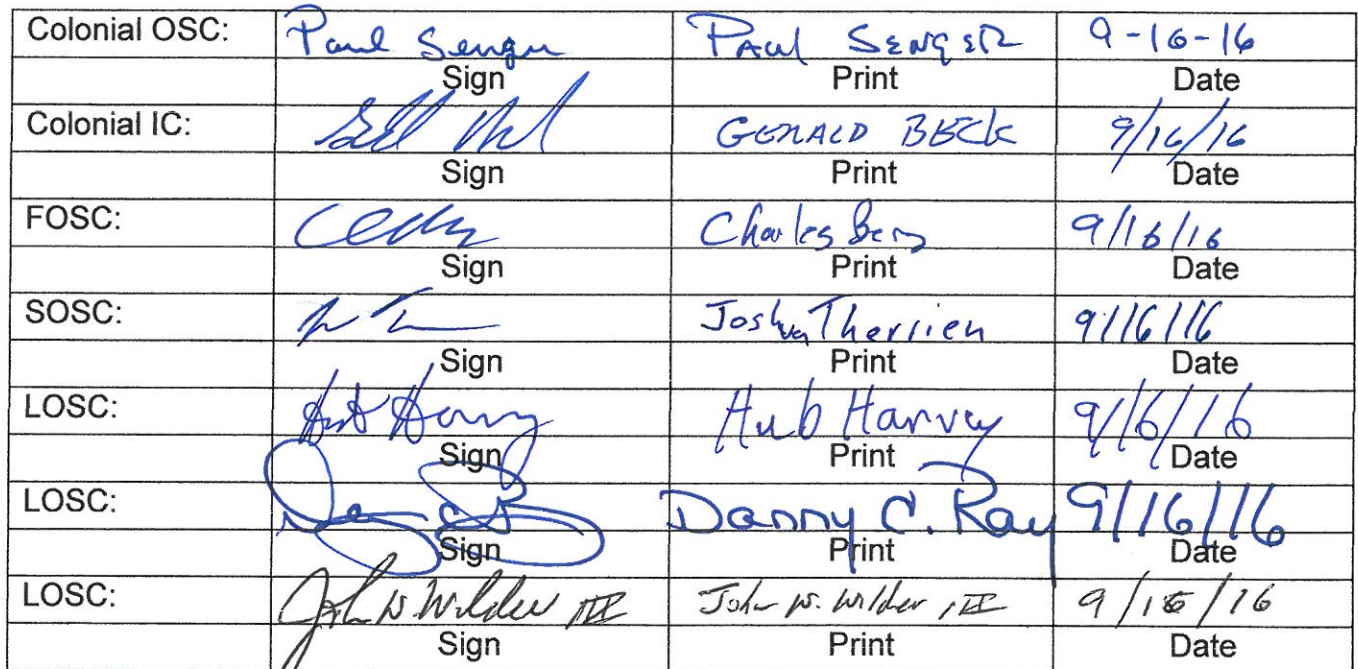 Colonial OSC: Paul Senger PAUL SENGER 9-16-16
Sign Print Date
Colonial IC: GERALD BECK 9/16/16
Sign Print Date
FOSC: Charles Berry 9/16/16
Sign Print Date
SOSC: Joshua Therrien 9/16/16
Sign Print Date
LOSC: Hub Harvey Hub Harvey 9/16/16
Sign Print Date
LOSC: Danny C. Ray 9/16/16
Sign Print Date
LOSC: John W. Wilder III John W. Wilder III 9/16/16
Sign Print Date